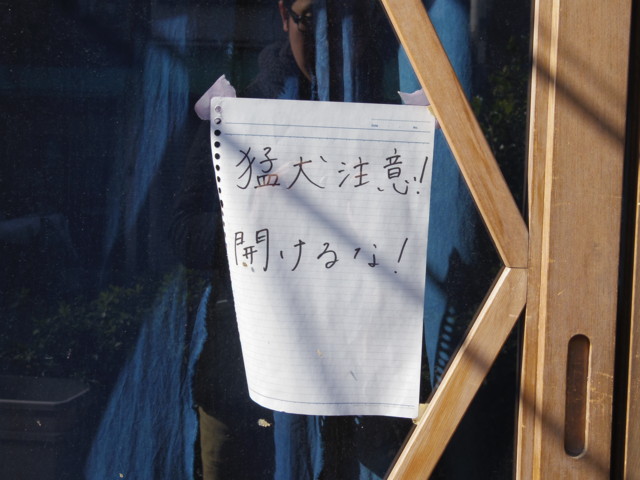 猛犬注意!
開けるな!